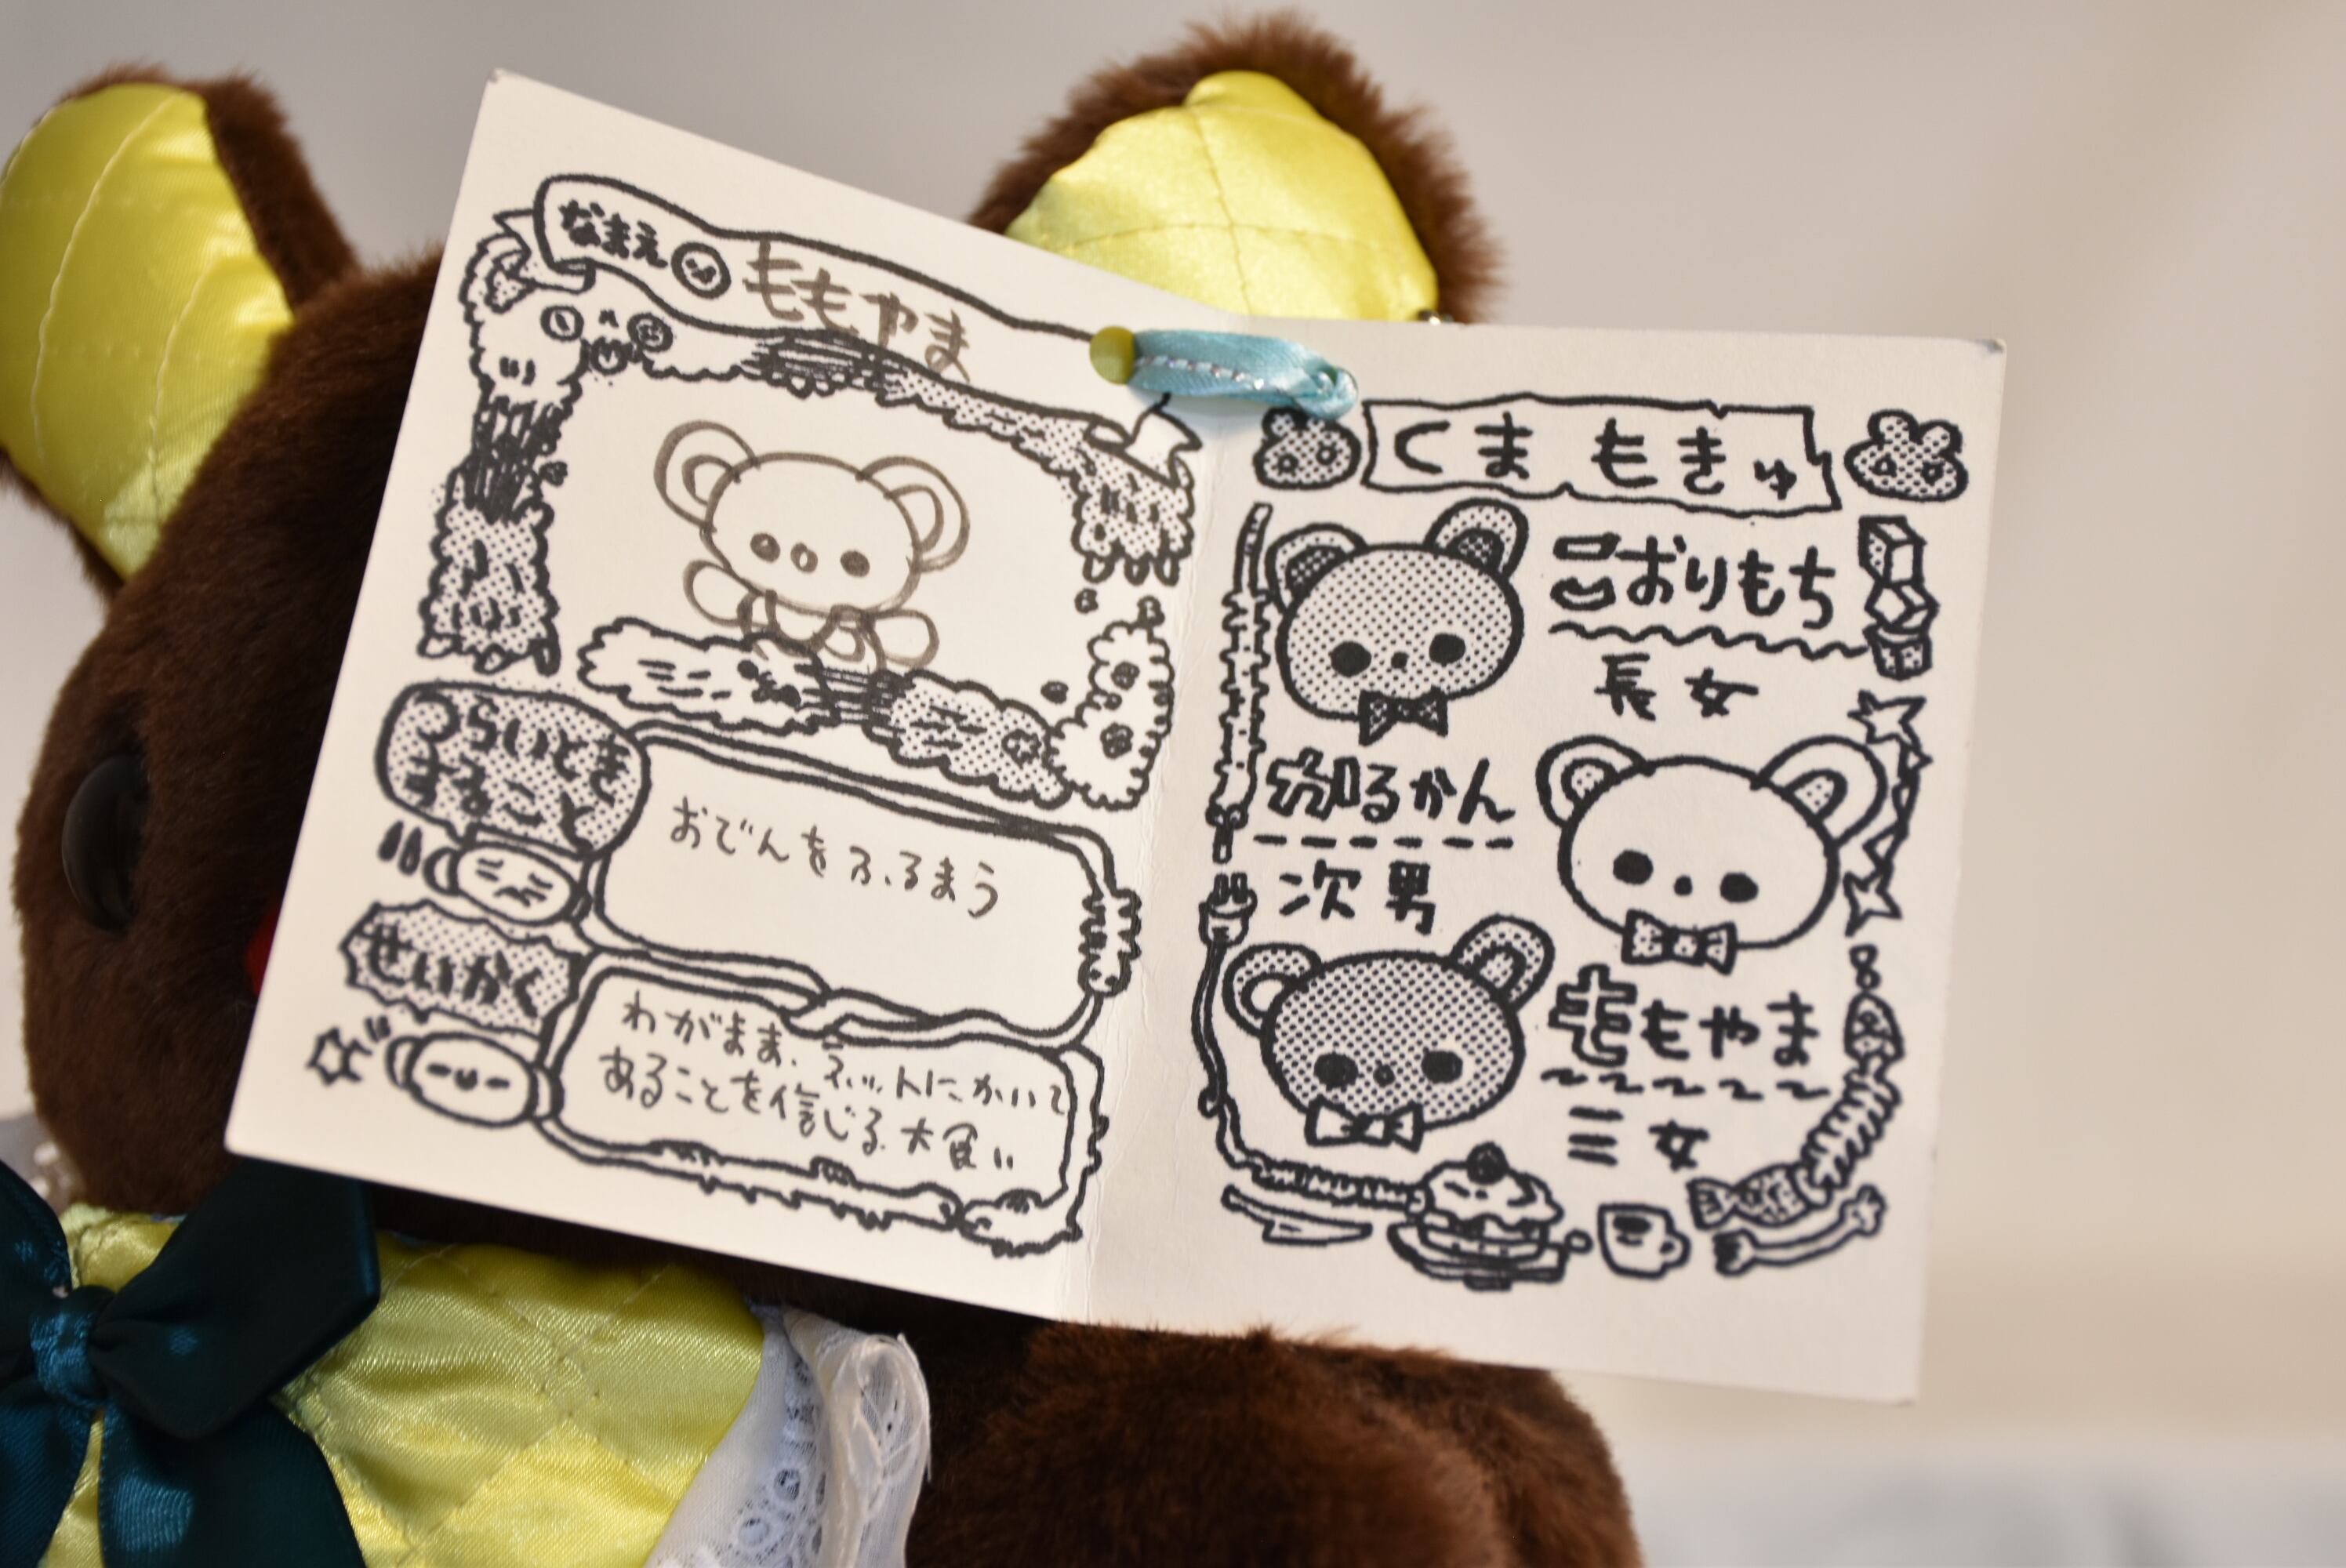 なまえ ももやま
つらいとき
すること
おでんをふるまう
せいかく
わがまま、ネットにかいて
あることを信じる、大食い
くま もきゅ
こおりもち
長女
珈るかん
次男
毛もやま
三女